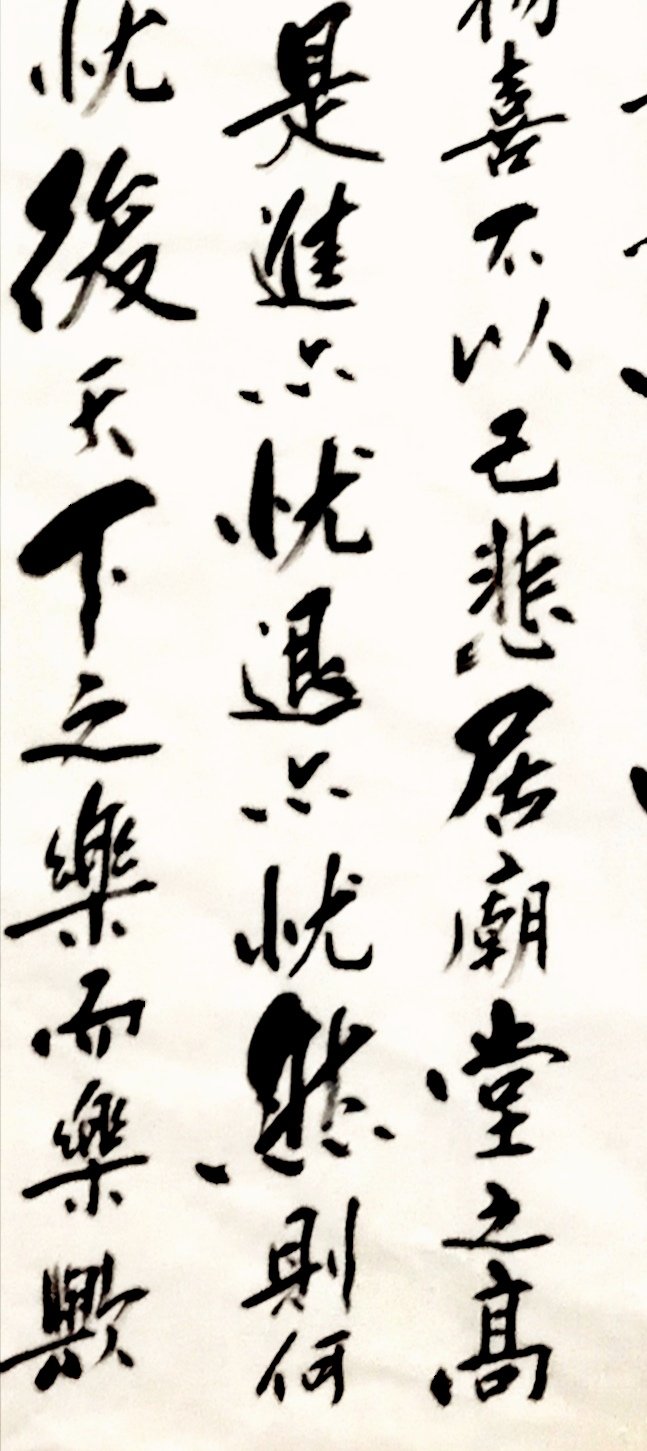 物喜不以己悲居廟堂之高
是進亦忧退亦忧然則何
忧後天下之樂而樂歟